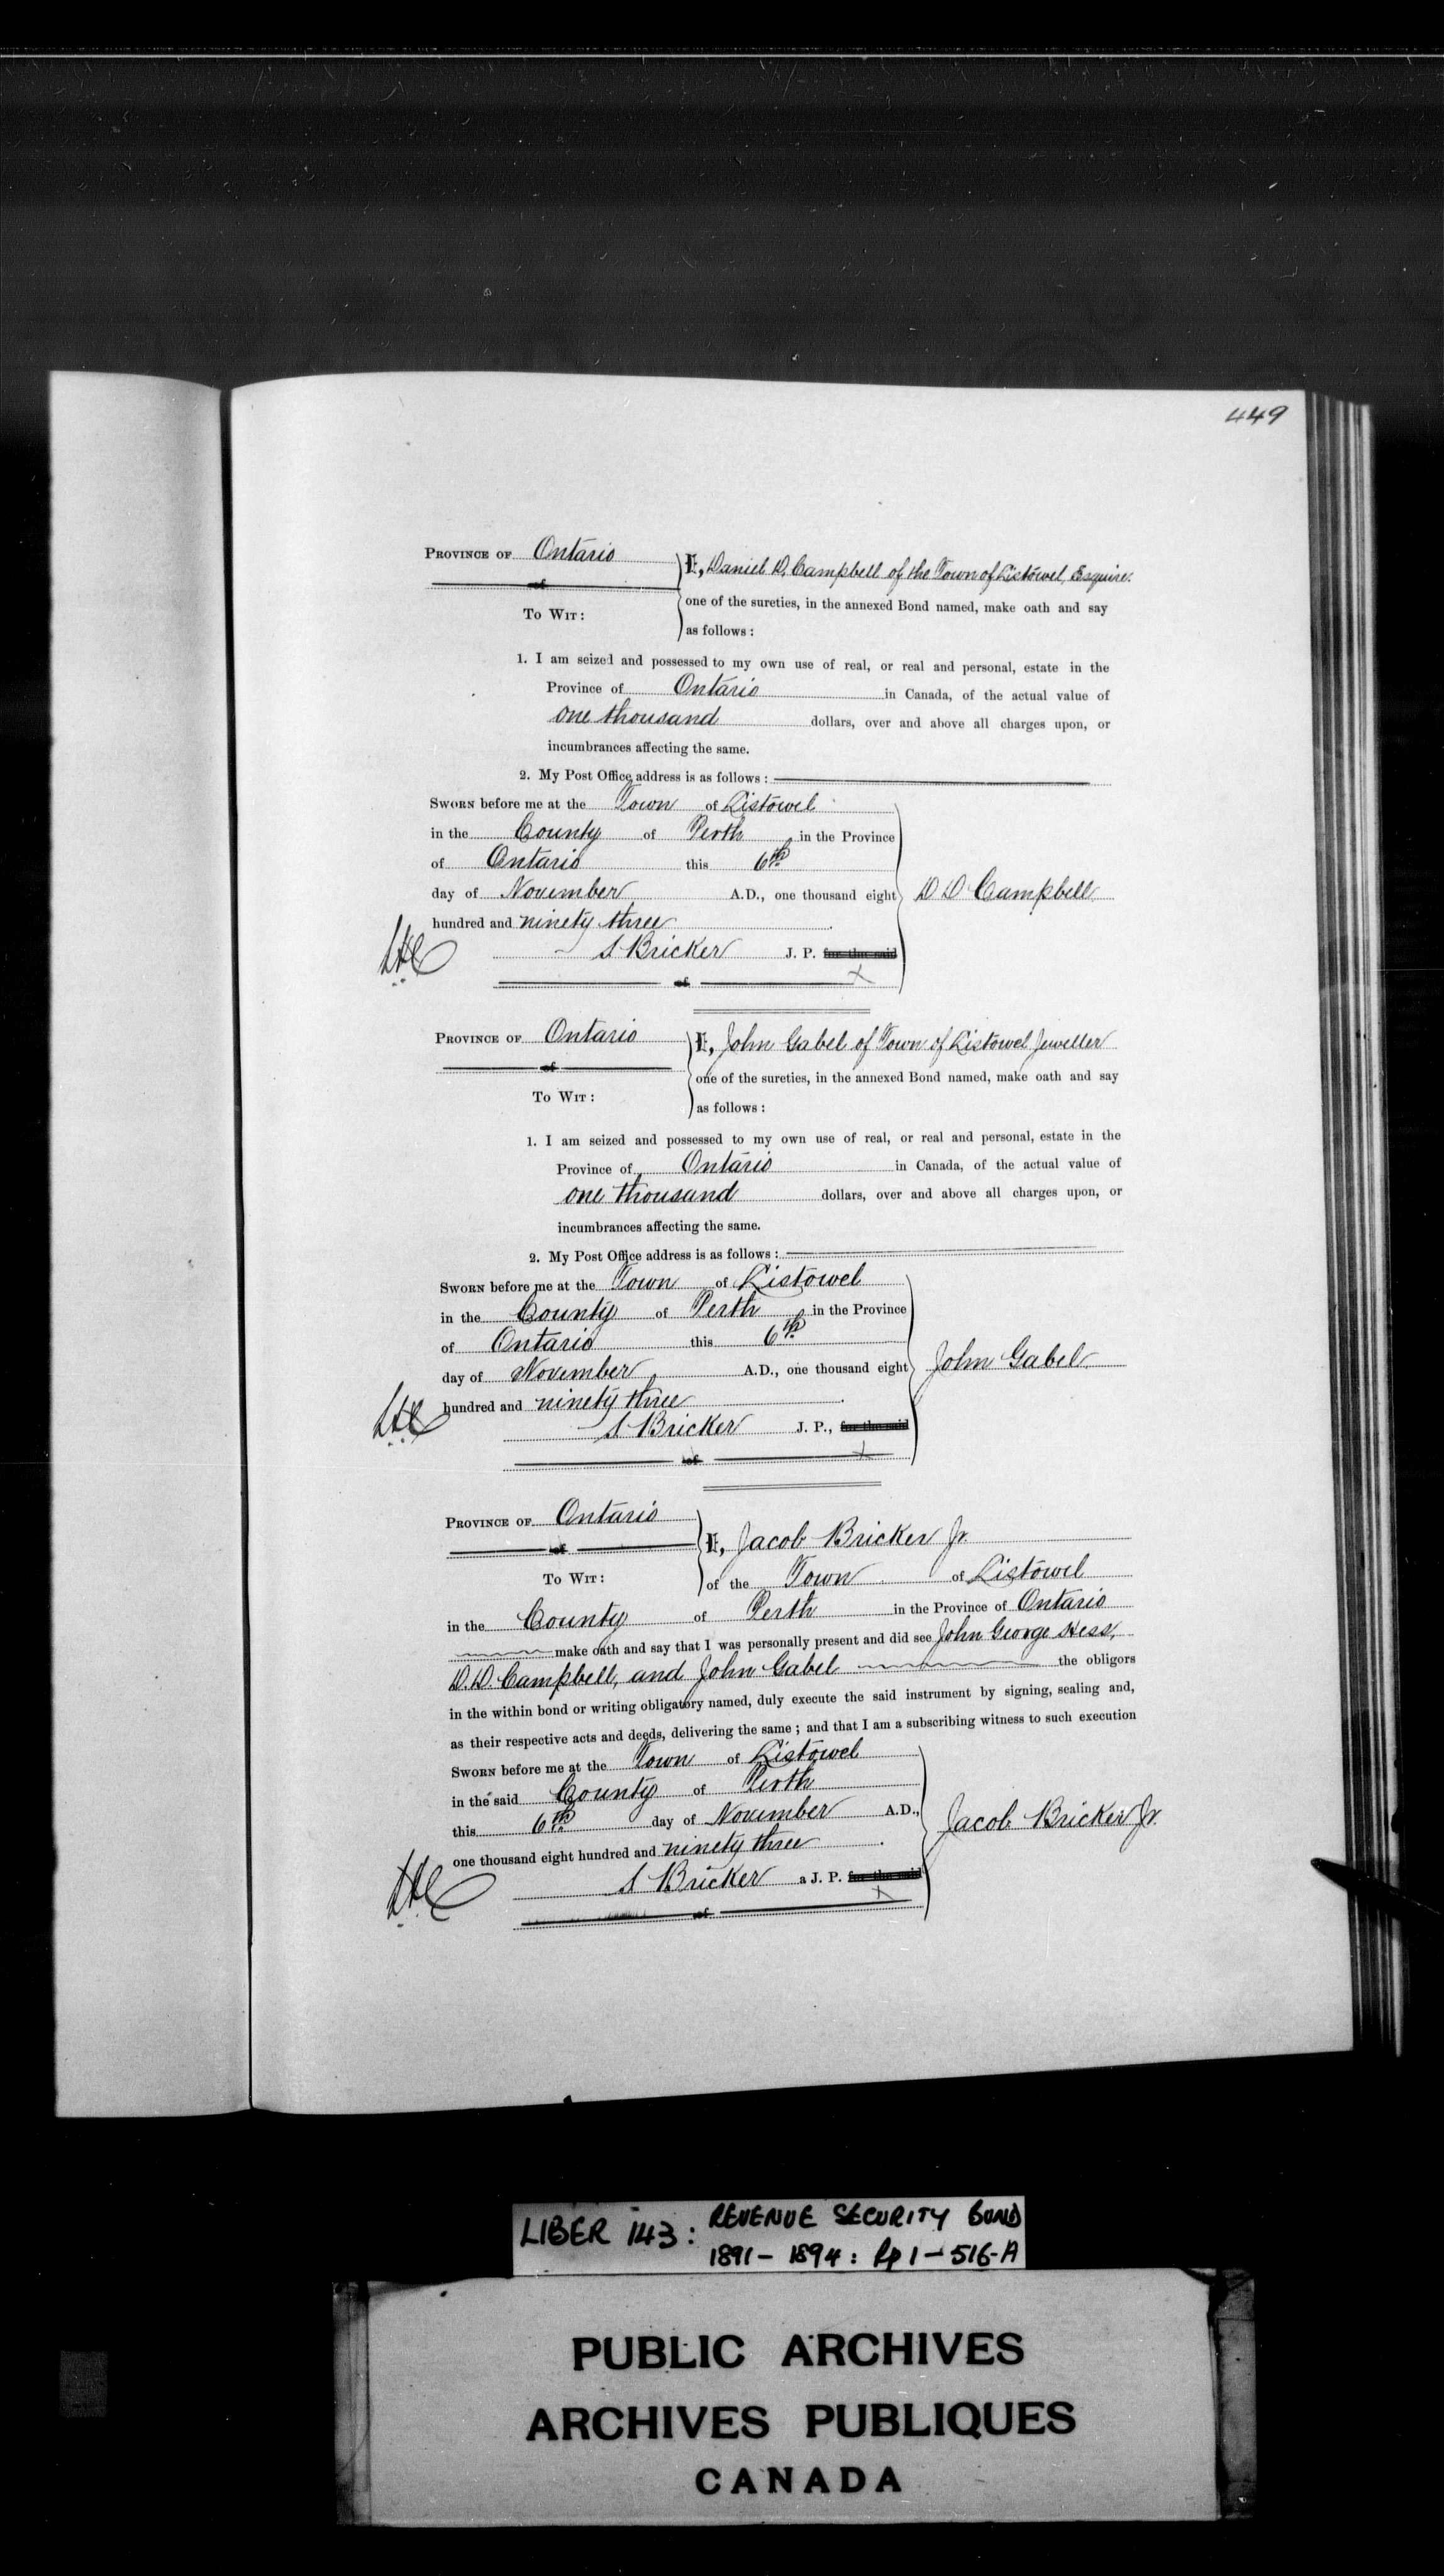 449
PROVINCE OF Ontario
of
I, Daniel D. Campbell of the Town of Listowel, Esquire.
TO WIT:
one of the sureties, in the annexed Bond named, make oath and say
as follows:
1. I am seized and possessed to my own use of real, or real and personal, estate in the
Province of Ontario in Canada, of the actual value of
one thousand dollars, over and above all charges upon, or
incumbrances affecting the same.
2. My Post Office address is as follows:
SWORN before me at the Town of Listowel
in the County of Perth in the Province
of Ontario this 6th
day of November A.D., one thousand eight
D D Campbell
hundred and ninety three
S Bricker J. P. for the said
of
PROVINCE OF Ontario
of
I, John Gabel of Town of Listowel Jeweller
TO WIT:
one of the sureties, in the annexed Bond named, make oath and say
as follows:
1. I am seized and possessed to my own use of real, or real and personal, estate in the
Province of Ontario in Canada, of the actual value of
one thousand dollars, over and above all charges upon, or
incumbrances affecting the same.
2. My Post Office address is as follows:
SWORN before me at the Town of Listowel
in the County of Perth in the Province
of Ontario this 6th
day of November A.D., one thousand eight
John Gabel
hundred and ninety three
S Bricker J. P., for the said
of
PROVINCE OF Ontario
of
I, Jacob Bricker Jr.
TO WIT:
of the Town of Listowel
in the County of Perth in the Province of Ontario
make oath and say that I was personally present and did see John George Hess,
D. D. Campbell, and John Gabel the obligors
in the within bond or writing obligatory named, duly execute the said instrument by signing, sealing and,
as their respective acts and deeds, delivering the same; and that I am a subscribing witness to such execution
SWORN before me at the Town of Listowel
in the said County of Perth
this 6th day of November A.D.,
Jacob Bricker Jr.
one thousand eight hundred and ninety three
S Bricker a J. P. for the said
of
LIBER 143: REVENUE SECURITY BOND
1891-1894: Pp 1-516-A
PUBLIC ARCHIVES
ARCHIVES PUBLIQUES
CANADA